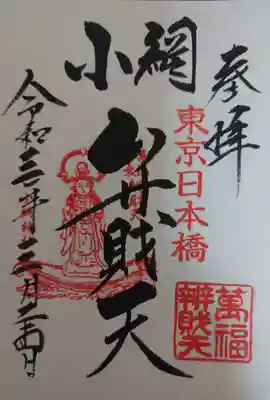 奉拝
東京日本橋
萬福
辨財天
小網
弁財天
令和三年十二月二十四日